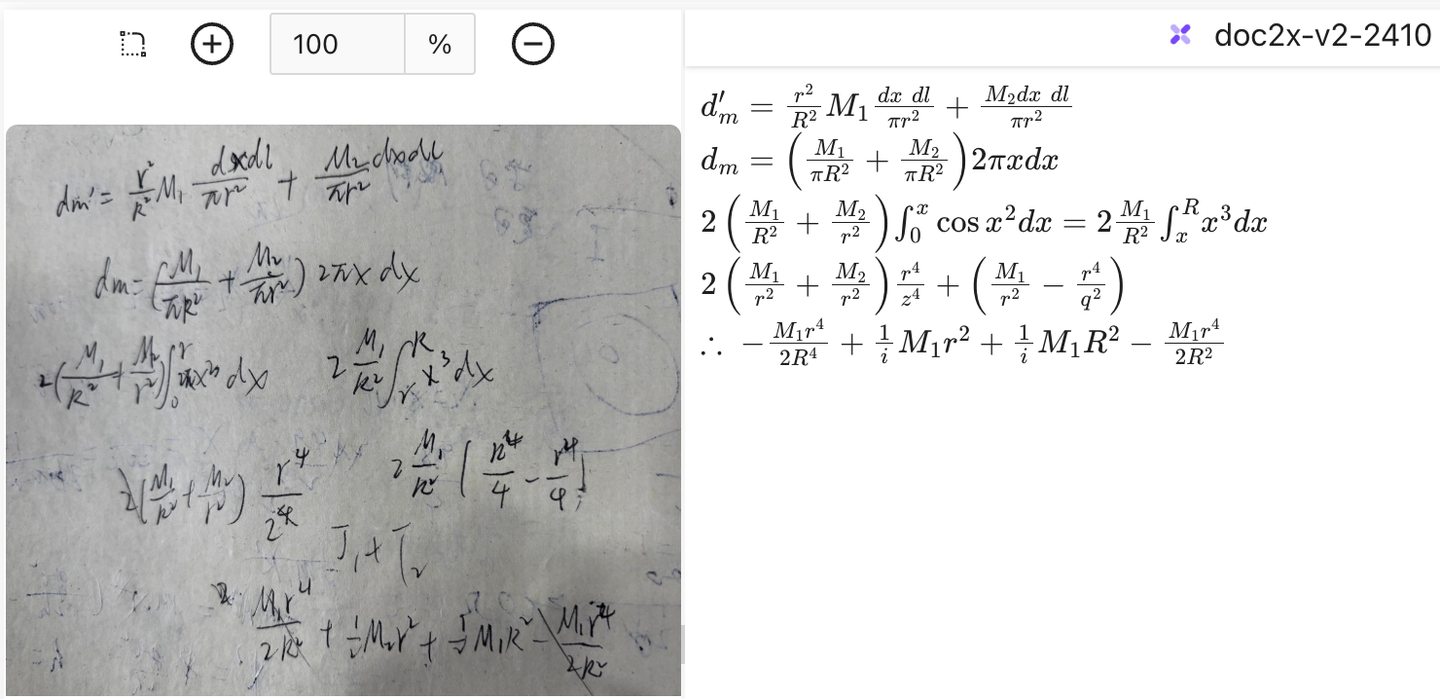 100 %
doc2x-v2-2410
dm' = \frac{r^2}{R^2} M_1 \frac{dxdl}{\pi r^2} + \frac{M_2 dxdl}{\pi r^2}
dm = (\frac{M_1}{\pi R^2} + \frac{M_2}{\pi r^2}) 2\pi x dx
2(\frac{M_1}{R^2} + \frac{M_2}{r^2}) \int_0^r x^3 dx 2\frac{M_1}{R^2} \int_r^R x^3 dx
2(\frac{M_1}{R^2} + \frac{M_2}{r^2}) \frac{r^4}{24} 2\frac{M_1}{R^2} [\frac{R^4}{4} - \frac{r^4}{4}]
J_1 + J_2
\frac{M_1 r^4}{2R^2} + \frac{1}{2} M_2 r^2 + \frac{1}{2} M_1 R^2 - \frac{M_1 r^4}{2R^2}
d'_m = \frac{r^2}{R^2} M_1 \frac{dx dl}{\pi r^2} + \frac{M_2 dx dl}{\pi r^2}
d_m = (\frac{M_1}{\pi R^2} + \frac{M_2}{\pi R^2}) 2\pi x dx
2(\frac{M_1}{R^2} + \frac{M_2}{r^2}) \int_0^x \cos x^2 dx = 2\frac{M_1}{R^2} \int_x^R x^3 dx
2(\frac{M_1}{r^2} + \frac{M_2}{r^2}) \frac{r^4}{z^4} + (\frac{M_1}{r^2} - \frac{r^4}{q^2})
∴ -\frac{M_1 r^4}{2R^4} + \frac{1}{i} M_1 r^2 + \frac{1}{i} M_1 R^2 - \frac{M_1 r^4}{2R^2}